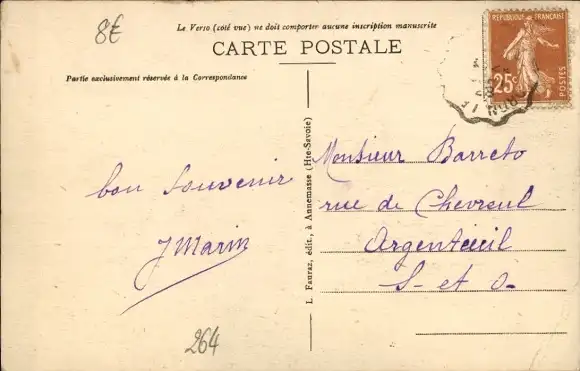 8€
Le Verso (coté vue) ne doit comporter aucune inscription manuscrite
CARTE POSTALE
Partie exclusivement réservée à la Correspondance
REPUBLIQUE FRANÇAISE
25c
POSTES
bon souvenir
J Marin
264
L. Fauraz, édit., à Annemasse (Hte-Savoie)
Monsieur Barreto
rue de Chevreul
Argenteuil
S- et O-